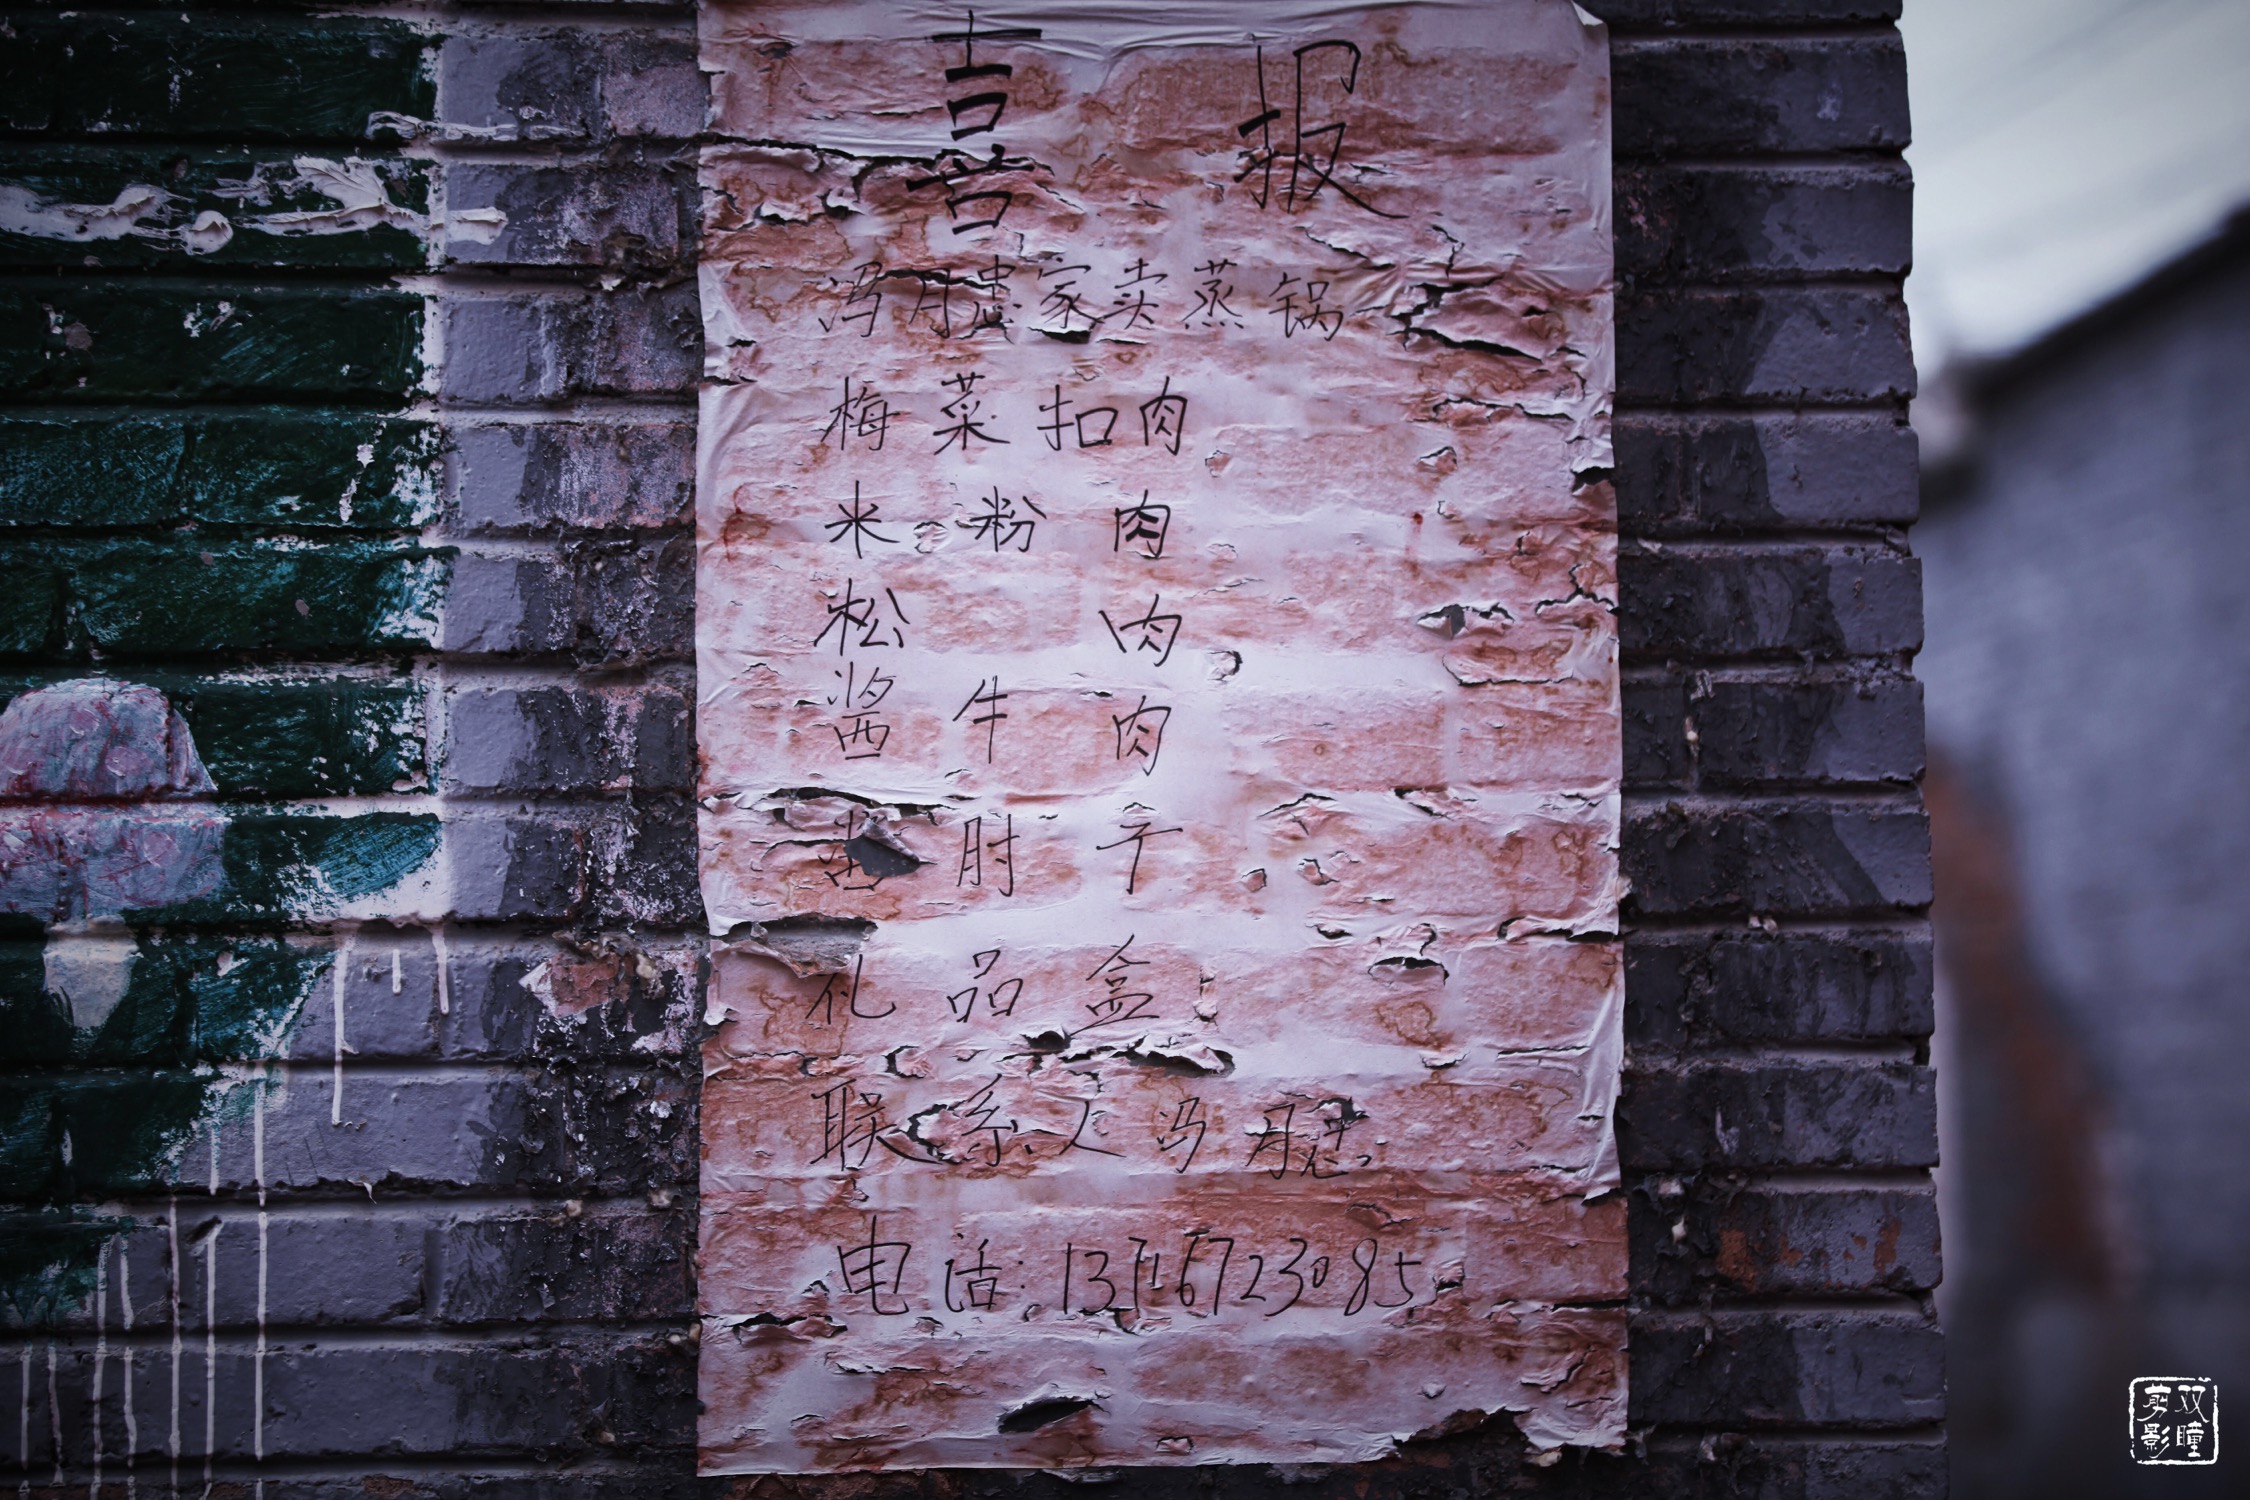 喜报
冯月忠家卖蒸锅
梅菜扣肉
米粉肉
松肉
酱牛肉
酱肘子
礼品盒
联系人冯月忠
电话:13716723085
双瞳
剪影